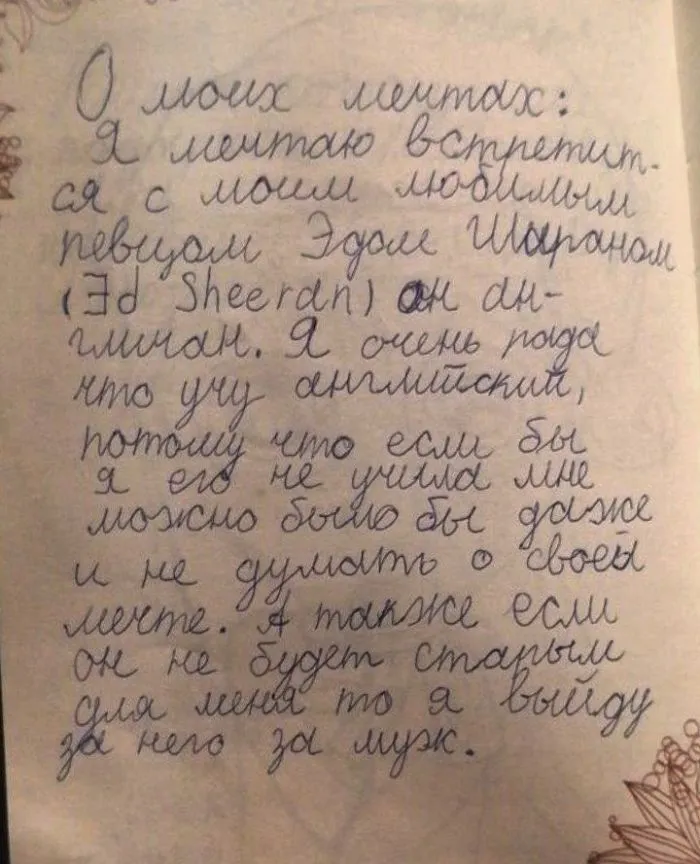 О моих мечтах:
Я мечтаю встретит-
ся с моим любимым
певцом Эдом Шираном
(Ed Sheeran) он ан-
гличан. Я очень рада
что учу английский,
потому что если бы
я его не учила мне
можно было бы даже
и не думать о своей
мечте. А также если
он не будет старым
для меня то я выйду
за него за муж.